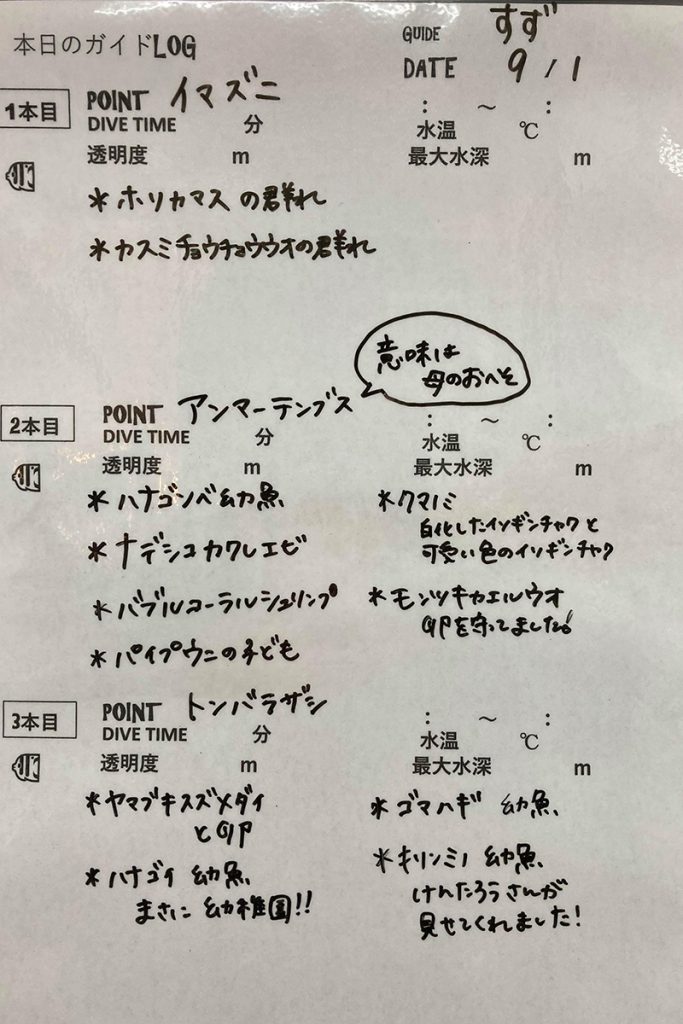 本日のガイドLOG
GUIDE すず
DATE 9/1
1本目
POINT イマズニ
DIVE TIME 分
: ～ :
水温 ℃
透明度 m
最大水深 m
＊ホソカマスの群れ
＊カスミチョウチョウウオの群れ
意味は
母のおへそ
2本目
POINT アンマーテンブス
DIVE TIME 分
: ～ :
水温 ℃
透明度 m
最大水深 m
＊ハナゴンベ幼魚
＊ナデシコカクレエビ
＊バブルコーラルシュリンプ
＊パイプウニの子ども
＊クマノミ
白化したイソギンチャクと
可愛い色のイソギンチャク
＊モンツキカエルウオ
卵を守ってました!
3本目
POINT トンバラザシ
DIVE TIME 分
: ～ :
水温 ℃
透明度 m
最大水深 m
＊ヤマブキスズメダイ
と卵
＊ハナゴイ 幼魚
まさに 幼稚園!!
＊ゴマハギ 幼魚
＊キリンミノ 幼魚
けんたろうさんが
見せてくれました!